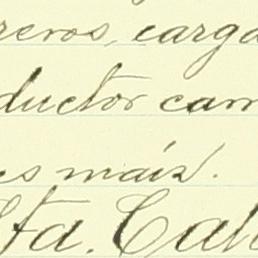 reros, carga
ductor cam
es maíz.
Sta. Cal